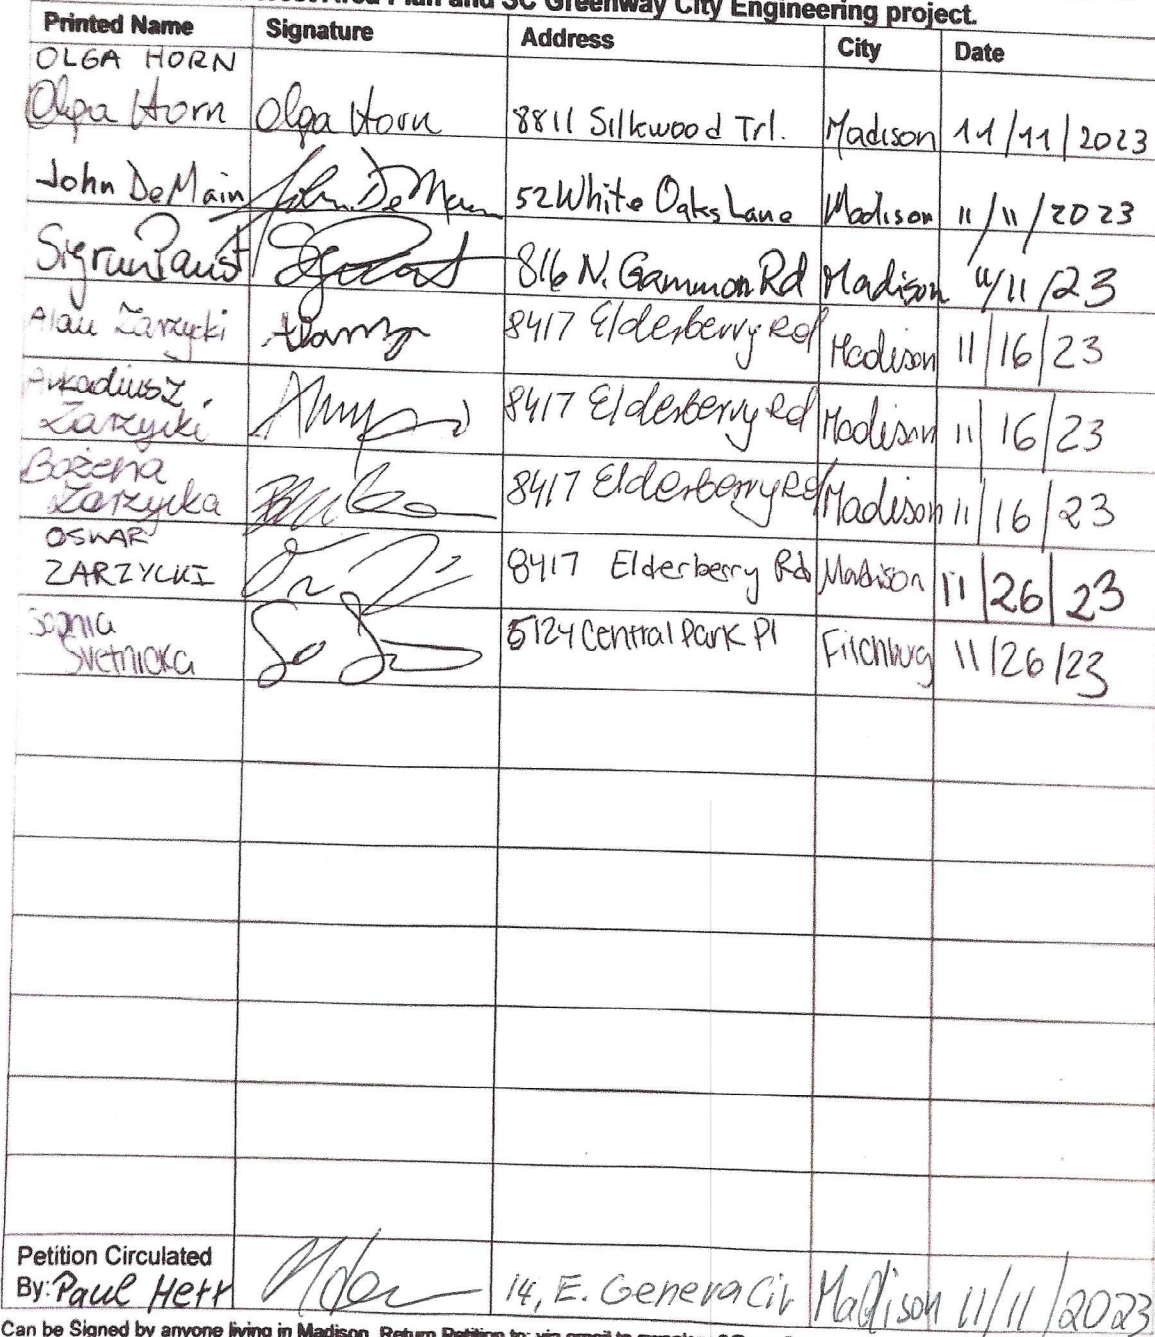 Area Plan and SC Greenway City Engineering project.
Printed Name Signature Address City Date
OLGA HORN
Olga Horn Olga Horn 8811 Silkwood Trl. Madison 11/11/2023
John DeMain John DeMain 52 White Oaks Lane Madison 11/11/2023
Sigrun Paust 816 N. Gammon Rd Madison 11/11/23
Alan Zarzycki 8417 Elderberry Rd Madison 11/16/23
Arkadiusz
Zarzycki 8417 Elderberry Rd Madison 11/16/23
Bożena
Zarzycka 8417 Elderberry Rd Madison 11/16/23
OSKAR
ZARZYCKI 8417 Elderberry Rd Madison 11/26/23
Sophia
Svetnicka 5124 Central Park Pl Fitchburg 11/26/23
Petition Circulated
By: Paul Herr 14, E. Geneva Cir Madison 11/11/2023
Can be Signed by anyone living in Madison. Return Petition to: via email to